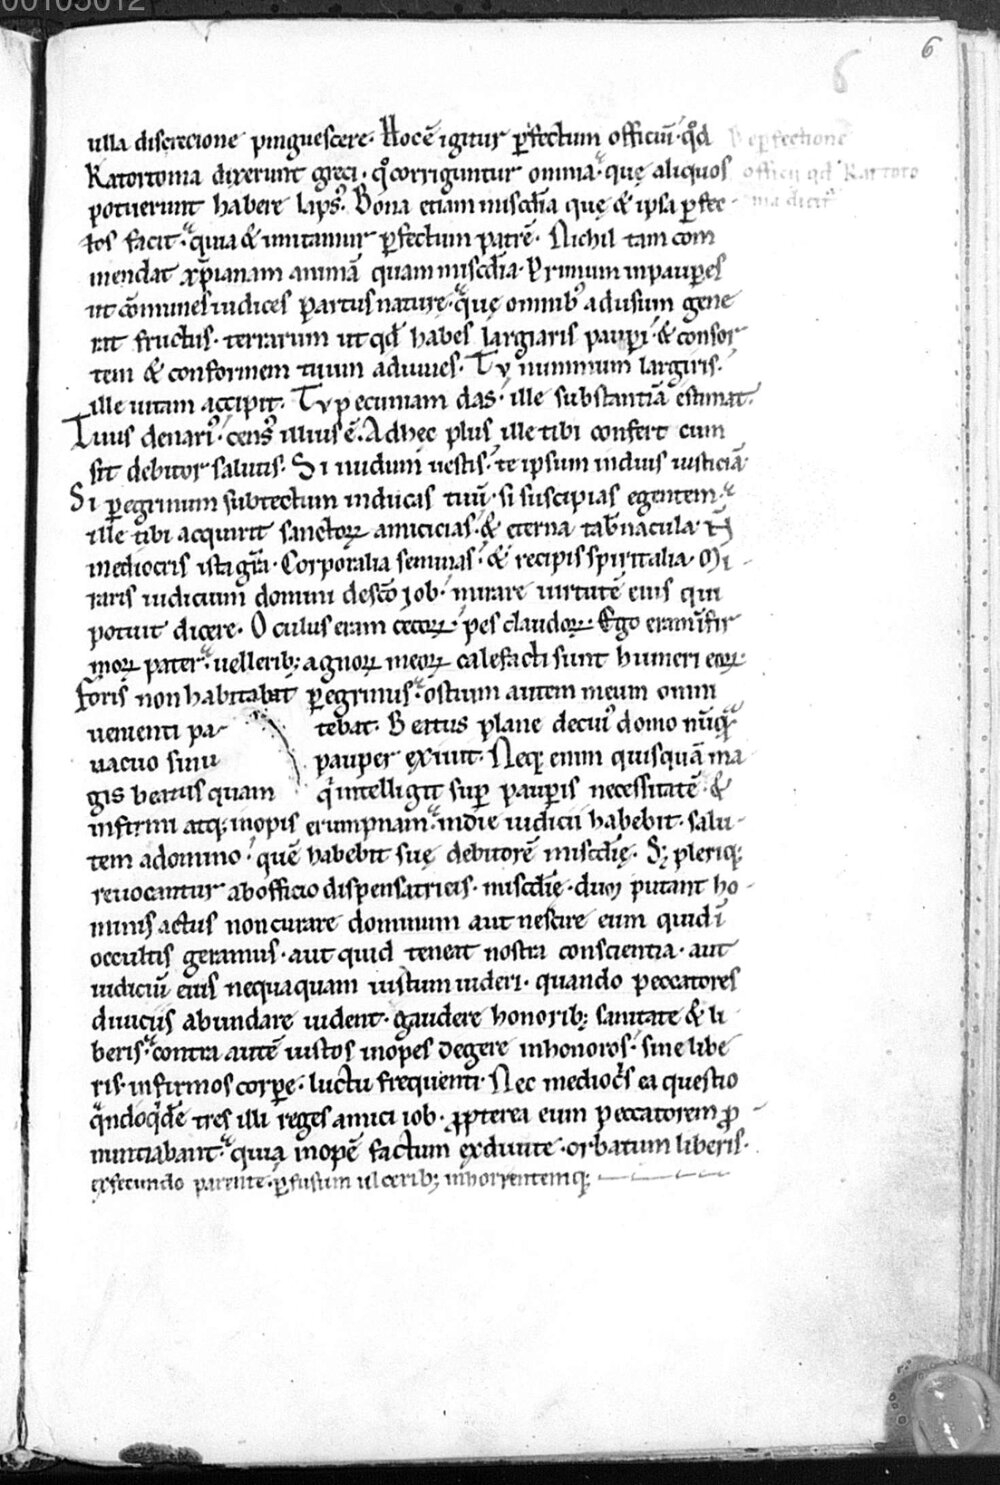 00105012
6
6
ulla discrecione pinguescere. Hoc ē igitur ꝑfectum officiū. qd̊
Katortoma dixerunt greci. qͦ corriguntur omnia. quę aliquos
potuerunt habere lapsꝰ. Bona etiam miscđia quę & ipsa ꝑfec-
tos facit. quia & imitamur ꝑfectum patrē. Nichil tam com
mendat xp̄ianam animā quam miscđia. Primum in pauꝑes
ut cōmunes iudices partus naturę. quę omnibꝰ ad usum gene
rat fructus. terrarum ut qđ habes largiaris pauꝑi. & consor
tem & conformem tuum adiuues. Tu nummum largiris.
ille uitam accipit. Tu pecuniam das. ille substantiā estimat.
Tuus denariꝰ. censꝰ illius ē. Ad hec plus ille tibi confert cum
sit debitor salutis. Si nudum uestis. te ipsum induis iusticiā.
Si ꝑegrinum sub tectum inducas tuū. si suscipias egentem.
ille tibi acquirit sanctoꝝ amicicias. & eterna tab̄nacula. N̄
mediocris ista gr̄a. Corporalia seminas. & recipis spiritalia. Mi-
raris iudicium domini de scō iob. mirare uirtutē eius qui
potuit dicere. Oculus eram cecoꝝ. pes claudoꝝ. Ego eram īfir
moꝝ pater. uelleribꝫ agnoꝝ meoꝝ calefacti sunt humeri eoꝝ.
Foris non habitabat ꝑegrinus. ostium autem meum omni
uenienti pa- tebat. Beatus plane de cuiꝰ domo nūqͣ
uacuo sinu pauper exiuit. Neqꝫ enim quisquā ma
gis beatus quam qͥ intelligit suꝑ pauꝑis necessitatē. &
infirmi atqꝫ inopis erumpnam. in die iudicii habebit. salu-
tem a domino. quē habebit suę debitorē miscđię. Sꝫ pleriqꝫ
reuocantur ab officio dispensatricis. miscđię. dum putant ho-
minis actus non curare dominum aut nescire eum quid ī
occultis geramus. aut quid teneat nostra conscientia. aut
iudiciū eius nequaquam iustum uideri. quando peccatores
diuiciis abundare uident. gaudere honoribꝫ sanitate & li-
beris. contra autē iustos inopes degere inhonoros. sine libe
ris. infirmos corꝑe. luctu frequenti. Nec mediocͥs ea questio
qͣndoqͥdē tres illi reges amici iob. ꝓpterea eum peccatorem ꝓ-
nuntiabant. quia inopē factum ex diuite. orbatum liberis.
ex fecundo parente. ꝑfusum ulceribꝫ inhorrentemqꝫ
De perfectione
officii qđ Katorto
ma dicitʳ